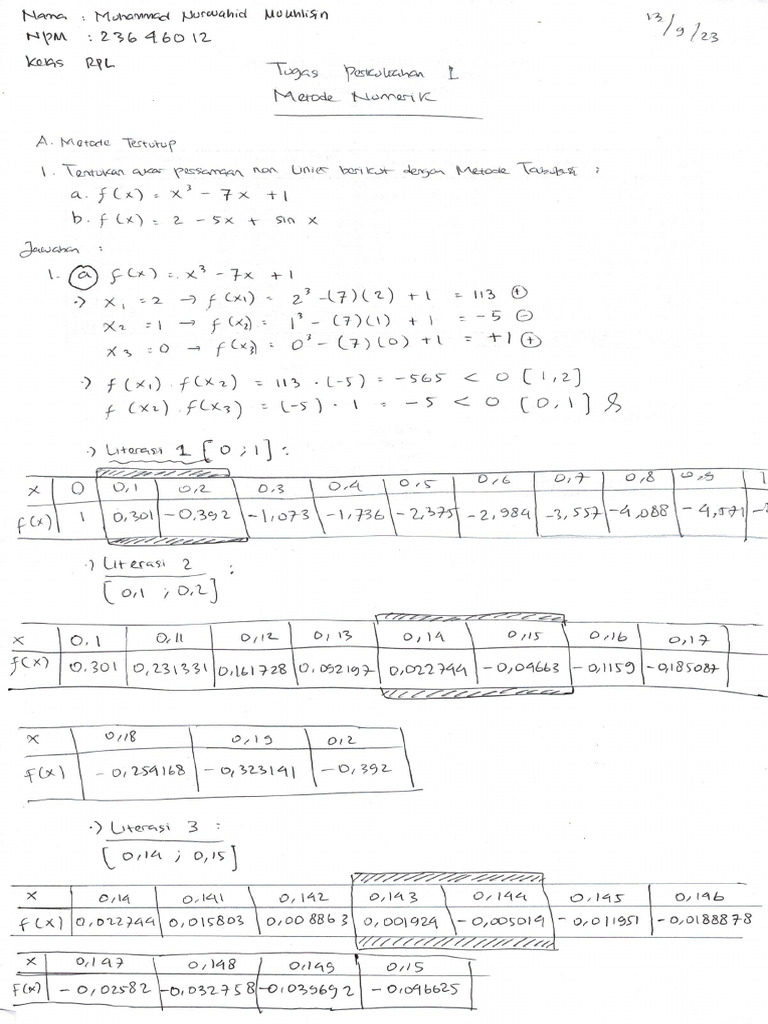 Nama : Muhammad Nurwahid Mukhlisin
NPM : 23646012
Kelas RPL
13/9/23
Tugas Perkuliahan 1
Metode Numerik
A. Metode Tertutup
1. Tentukan akar persamaan non linier berikut dengan Metode Tabulasi :
a. f(x) = x³ - 7x + 1
b. f(x) = 2 - 5x + sin x
Jawaban :
1. (a) f(x) = x³ - 7x + 1
·) x₁ = 2 → f(x₁) = 2³ - (7)(2) + 1 = 113 ⊕
x₂ = 1 → f(x₂) = 1³ - (7)(1) + 1 = -5 ⊖
x₃ = 0 → f(x₃) = 0³ - (7)(0) + 1 = +1 ⊕
·) f(x₁) . f(x₂) = 113 · (-5) = -565 < 0 [1,2]
f(x₂) . f(x₃) = (-5) · 1 = -5 < 0 [0,1]
·) Literasi 1 [0 ; 1] :
x 0 0,1 0,2 0.3 0.4 0,5 0,6 0,7 0,8 0,9 1
f(x) 1 0,301 -0,392 -1,073 -1,736 -2,375 -2,984 -3,557 -4,088 -4,571
·) Literasi 2 :
[0,1 ; 0,2]
x 0.1 0,11 0,12 0,13 0,14 0,15 0,16 0,17
f(x) 0.301 0,231331 0,161728 0.092197 0,022744 -0,04663 -0,1159 -0,185087
x 0,18 0,19 0,2
f(x) -0,254168 -0,323141 -0,392
·) Literasi 3 :
[0,14 ; 0,15]
x 0,14 0,141 0,142 0,143 0,144 0,145 0,146
f(x) 0,022744 0,015803 0,008863 0,001924 -0,005014 -0,011951 -0,0188878
x 0,147 0,148 0,149 0,15
f(x) -0,02582 -0,032758 -0,039692 -0,046625